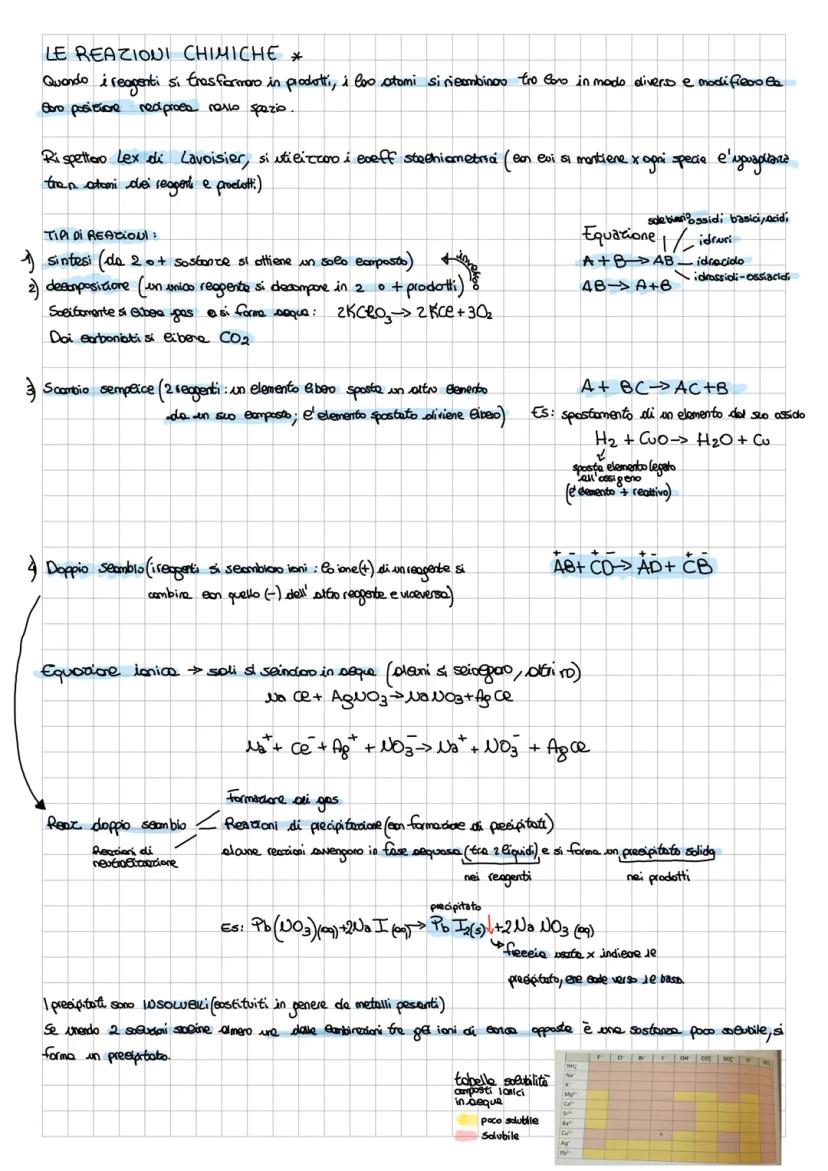 LE REAZIONI CHIMICHE *
Quando i reagenti si trasformano in prodotti, i loro atomi si ricombinano tra loro in modo diverso e modificano la
loro posizione reciproca nello spazio.
Rispettano Lex di Lavoisier, si utilizzano i coeff stechiometrici (con cui si mantiene x ogni specie l'uguaglianza
tra n. atomi dei reagenti e prodotti)
TIPI DI REAZIONI:
1) sintesi (da 2 o + sostanze si ottiene un solo composto)
inverso
2) decomposizione (un unico reagente si decompone in 2 o + prodotti)
Solitamente si libera gas e si forma acqua: 2KClO3 → 2KCl + 3O2
Dai carbonati si libera CO2
Equazione
ossidi basici, acidi
idruri
A + B → AB
idracido
idrossidi-ossiacidi
AB → A+B
3) Scambio semplice (2 reagenti: un elemento libero sposta un altro elemento
da un suo composto; l'elemento spostato diviene libero)
A + BC → AC + B
Es: spostamento di un elemento dal suo ossido
H2 + CuO → H2O + Cu
sposta elemento legato
all'ossigeno
(l'elemento + reattivo)
4) Doppio scambio (i reagenti si scambiano ioni: lo ione (+) di un reagente si
combina con quello (-) dell'altro reagente e viceversa)
+ - + - + - + -
AB + CD → AD + CB
Equazione ionica → sali si scindono in acqua (alcuni si sciolgono, altri no)
Na Cl + AgNO3 → NaNO3 + AgCl
Na+ + Cl- + Ag+ + NO3- → Na+ + NO3- + AgCl
Formazione di gas
Reaz. doppio scambio
Reazioni di precipitazione (con formazione di precipitati)
Reazioni di
neutralizzazione
alcune reazioni avvengono in fase acquosa (tra 2 liquidi) e si forma un precipitato solido
nei reagenti
nei prodotti
precipitato
Es: Pb(NO3)(aq) + 2Na I (aq) → Pb I2(s) ↓ + 2Na NO3 (aq)
freccia usata x indicare il
precipitato, che cade verso il basso
I precipitati sono INSOLUBILI (costituiti in genere da metalli pesanti)
Se unendo 2 soluzioni saline almeno una delle combinazioni tra gli ioni di carica opposta è una sostanza poco solubile, si
forma un precipitato.
tabella solubilità
composti ionici
in acqua
poco solubile
solubile
F- Cl- Br- I- OH- CO3 2- SO4 2- S2- NO3-
NH4+
Na+
K+
Mg2+
Ca2+
Sr2+
Ba2+
Cu2+
Ag+
Pb2+